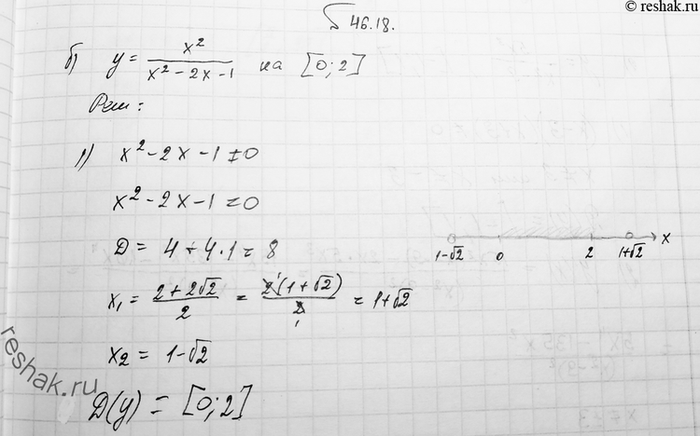 © reshak.ru
§ 46.18.
б) y = x²/(x² - 2x - 1) на [0; 2]
Реш:
1) x² - 2x - 1 ≠ 0
x² - 2x - 1 = 0
D = 4 + 4·1 = 8
x₁ = (2 + 2√2)/2 = 2(1 + √2)/2 = 1 + √2
x₂ = 1 - √2
D(y) = [0; 2]
1-√2 0 2 1+√2 x
reshak.ru